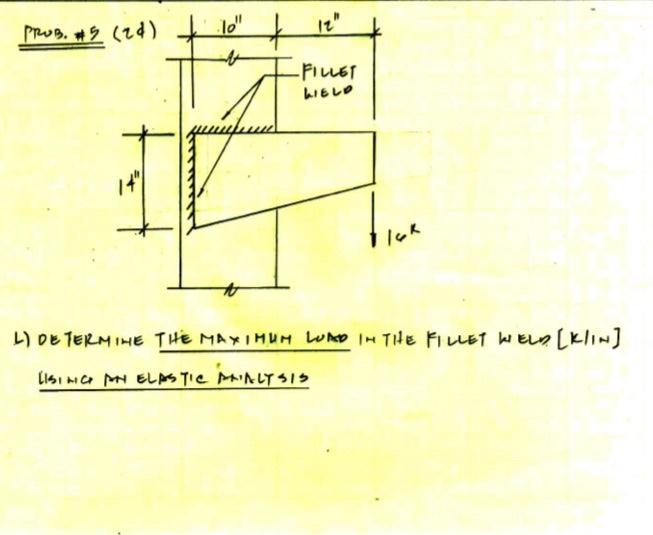 PROB. #5 (2d)
10" 12"
FILLET
WELD
14"
16ᴷ
1) DETERMINE THE MAXIMUM LOAD IN THE FILLET WELD [K/IN]
USING AN ELASTIC ANALYSIS